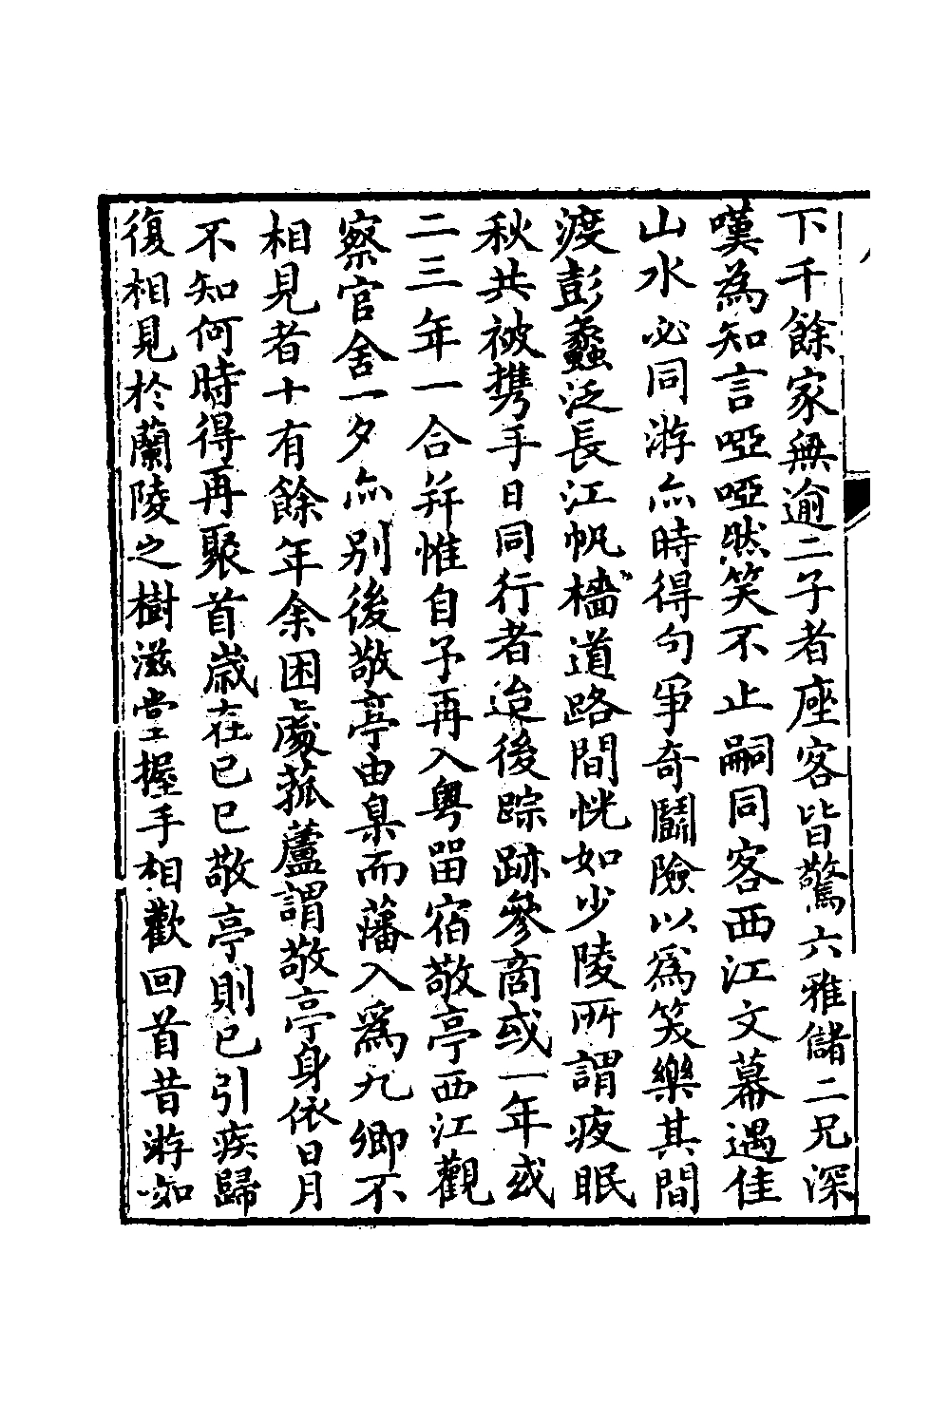 下千餘家無逾二子者座客皆驚六雅儲二兄深
嘆為知言啞啞然笑不止嗣同客西江文幕遇佳
山水必同游亦時得句爭奇鬪險以為笑樂其間
渡彭蠡泛長江帆檣道路間恍如少陵所謂夜眠
秋共被携手日同行者迨後踪跡參商或一年或
二三年一合幷惟自予再入粵畱宿敬亭西江觀
察官舍一夕亦別後敬亭由臬而藩入為九卿不
相見者十有餘年余困處菰蘆謂敬亭身依日月
不知何時得再聚首歲在己巳敬亭則已引疾歸
復相見於蘭陵之樹滋堂握手相歡回首昔游如